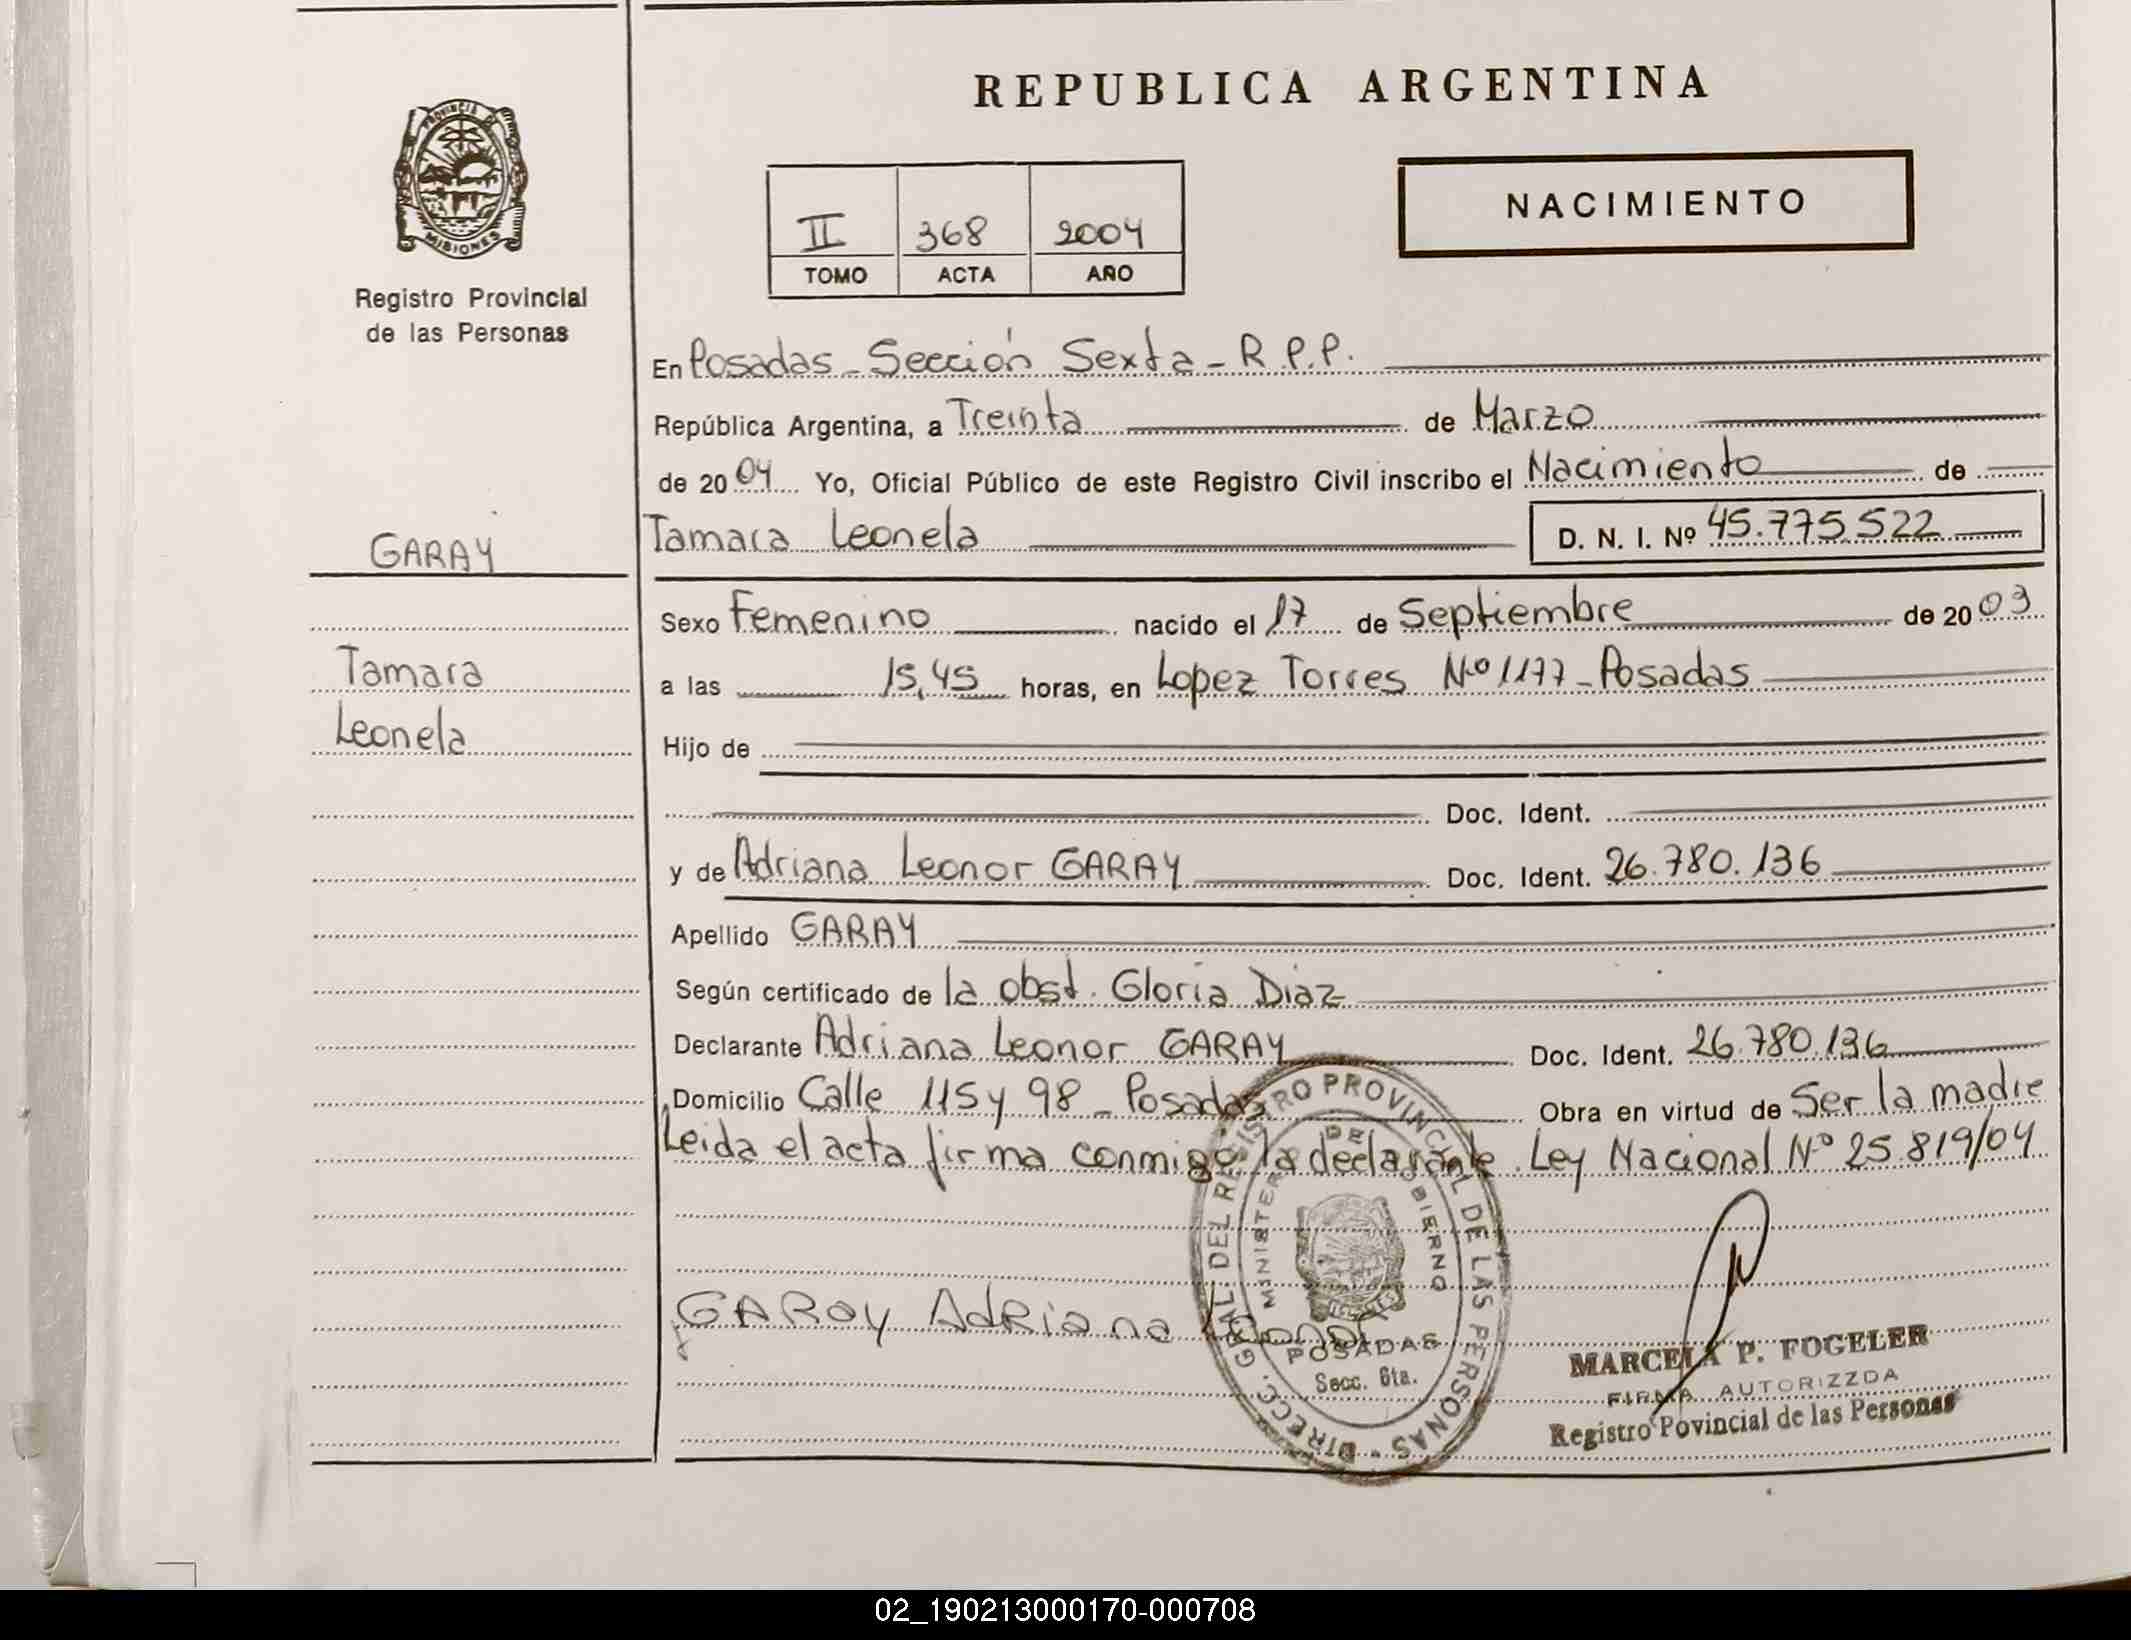 REPUBLICA ARGENTINA
PROVINCIA DE
MISIONES
Registro Provincial
de las Personas
II 368 2004
TOMO ACTA AÑO
NACIMIENTO
En Posadas - Sección Sexta - R.P.P.
República Argentina, a Treinta de Marzo
de 2004 Yo, Oficial Público de este Registro Civil inscribo el Nacimiento de
Tamara Leonela D. N. I. Nº 45.775.522
GARAY
Tamara
Leonela
Sexo Femenino nacido el 17 de Septiembre de 2003
a las 15,45 horas, en Lopez Torres Nº 1177 - Posadas
Hijo de
Doc. Ident.
y de Adriana Leonor GARAY Doc. Ident. 26.780.136
Apellido GARAY
Según certificado de la obst. Gloria Diaz
Declarante Adriana Leonor GARAY Doc. Ident. 26.780.136
Domicilio Calle 115 y 98 - Posadas Obra en virtud de Ser la madre
Leida el acta firma conmigo la declarante. Ley Nacional Nº 25.819/04
GARAY AdRiana Leonor
DIRECC. GRAL. DEL REGISTRO PROVINCIAL DE LAS PERSONAS
MINISTERIO DE GOBIERNO
POSADAS
Secc. 6ta.
MARCELA P. FOGELER
FIRMA AUTORIZZDA
Registro Povincial de las Personas
02_190213000170-000708